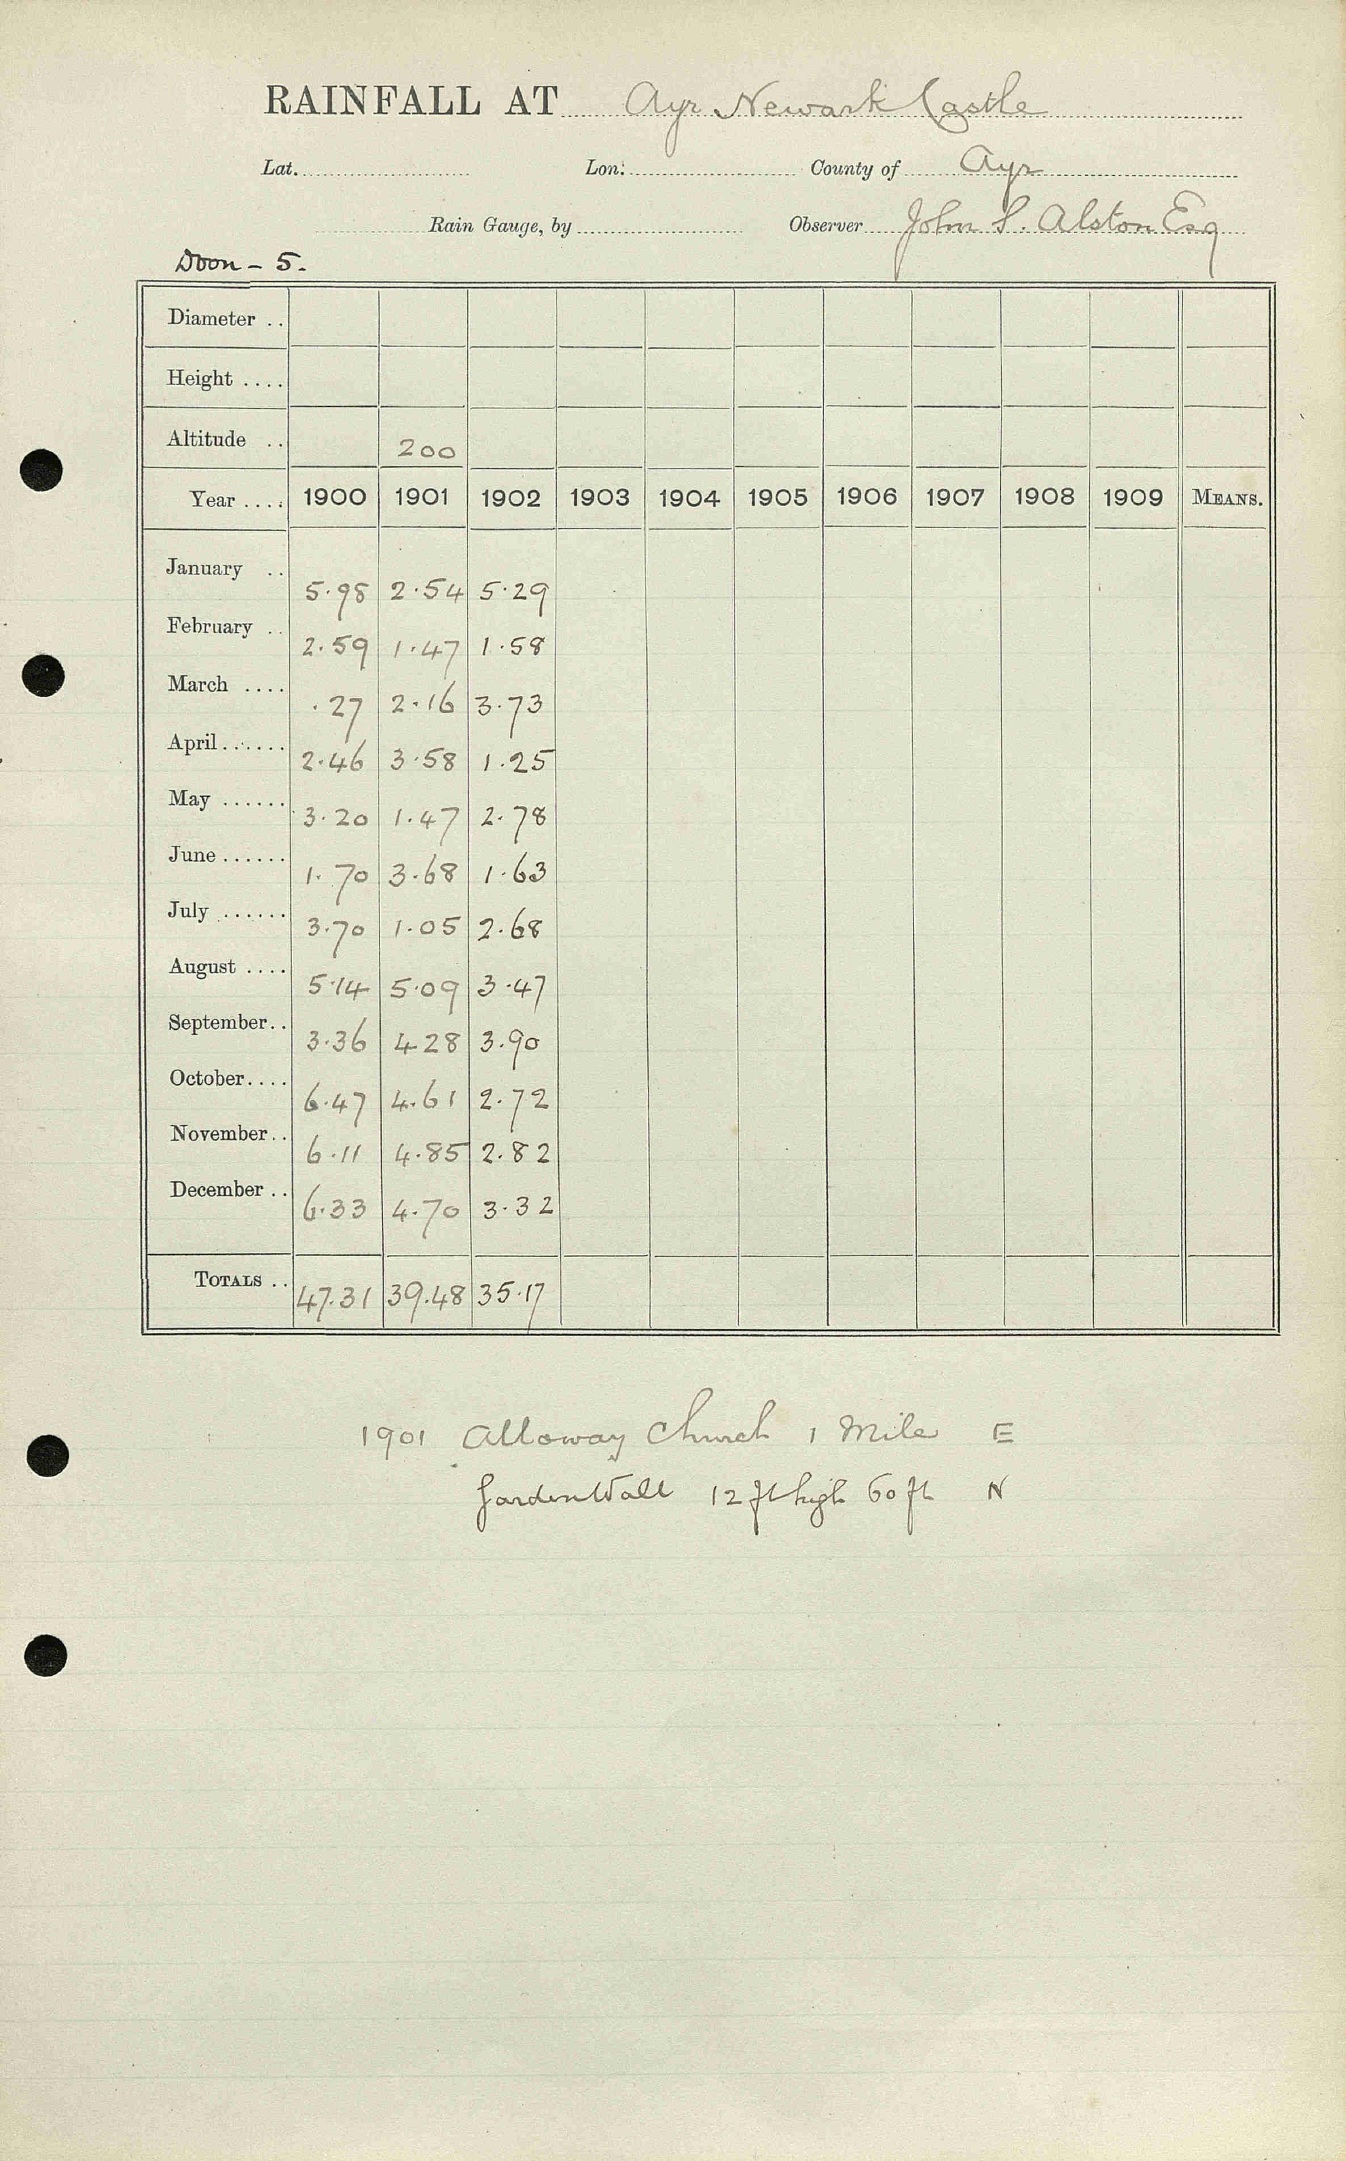 RAINFALL AT Ayr Newark Castle
Lat. Lon: County of Ayr
Rain Gauge, by Observer John S. Alston Esq
Doon - 5.
Diameter ..
Height ....
Altitude .. 200
Year .... 1900 1901 1902 1903 1904 1905 1906 1907 1908 1909 MEANS.
January .. 5.98 2.54 5.29
February .. 2.59 1.47 1.58
March .... .27 2.16 3.73
April ...... 2.46 3.58 1.25
May ...... 3.20 1.47 2.78
June ...... 1.70 3.68 1.63
July ...... 3.70 1.05 2.68
August .... 5.14 5.09 3.47
September.. 3.36 4.28 3.90
October.... 6.47 4.61 2.72
November.. 6.11 4.85 2.82
December .. 6.33 4.70 3.32
TOTALS .. 47.31 39.48 35.17
1901 Alloway Church 1 Mile E
Garden Wall 12 ft high 60 ft N